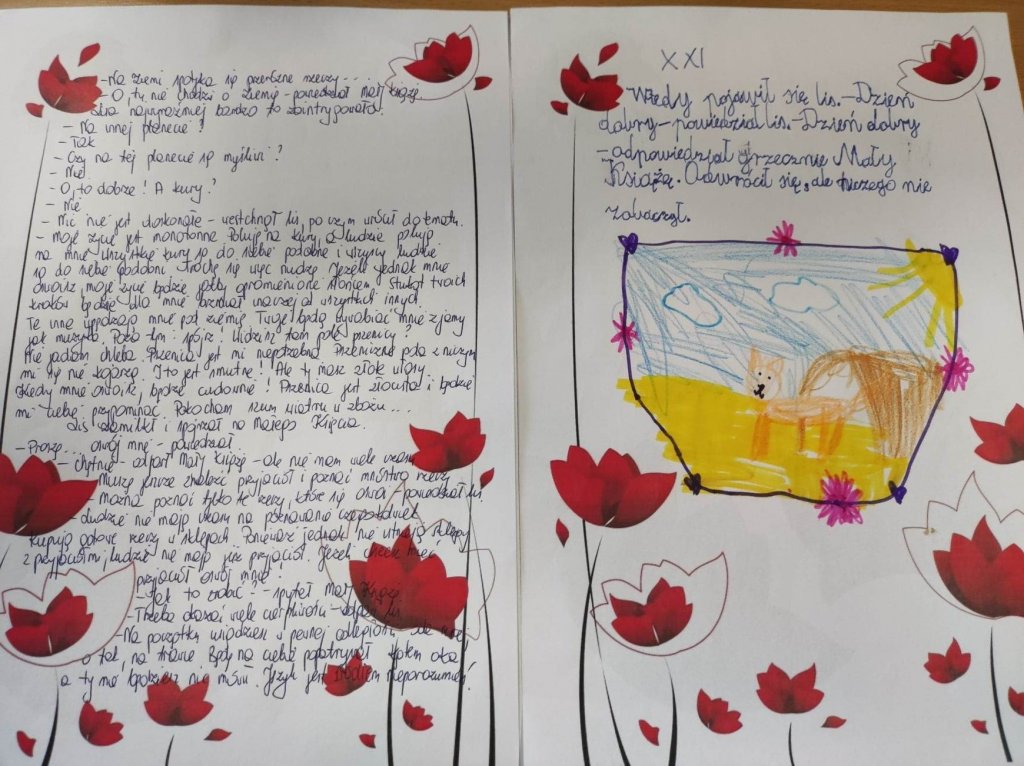 -Na ziemi spotyka się przeróżne rzeczy...
-O, tu nie chodzi o ziemię - powiedział Mały Książę.
Lisa najwyraźniej bardzo to zaintrygowało.
- Na innej planecie?
- Tak
- Czy na tej planecie są myśliwi?
- Nie
- O, to dobrze! A kury?
- Nie
- Nic nie jest doskonałe - westchnął lis, po czym wrócił do tematu.
- Moje życie jest monotonne. Poluję na kury a ludzie polują
na mnie. Wszystkie kury są do siebie podobne i wszyscy ludzie
są do siebie podobni. Trochę się więc nudzę. Jeżeli jednak mnie
oswoisz, moje życie będzie jakby opromienione słońcem. Stukot twoich
kroków będzie dla mnie brzmiał inaczej od wszystkich innych.
Te inne wpędzają mnie pod ziemię. Twoje będą wywabiać mnie z jamy
jak muzyka. Poza tym spójrz! Widzisz tam pole pszenicy?
Nie jadam chleba. Pszenica jest mi niepotrzebna. Pszeniczne pola z niczym
mi się nie kojarzą. I to jest smutne! Ale ty masz złote włosy.
Kiedy mnie oswoisz, będzie cudownie! Pszenica jest złocista i będzie
mi ciebie przypominać. Pokocham szum wiatru w zbożu...
Lis zamilkł i spojrzał na Małego Księcia.
- Proszę... oswój mnie - powiedział
- chętnie - odparł Mały Książę - ale nie mam wiele czasu
Muszę jeszcze znaleźć przyjaciół i poznać mnóstwo rzeczy
- można poznać tylko te rzeczy, które się oswoi - powiedział lis.
- Ludzie nie mają czasu na poznawanie czegokolwiek
Kupują gotowe rzeczy w sklepach. Ponieważ jednak nie istnieją sklepy
z przyjaciółmi, ludzie nie mają już przyjaciół. Jeżeli chcesz mieć
przyjaciół oswój mnie!
- Jak to zrobić? - spytał Mały Książę
- Trzeba okazać wiele cierpliwości - odparł lis
- Na początku usiądziesz w pewnej odległości, ode mnie,
o tak, na trawie. Będę na ciebie popatrywał kątem oka
a ty nie będziesz nic mówił. Język jest źródłem nieporozumień!
XXI
Wtedy pojawił się lis. - Dzień
dobry - powiedział lis. - Dzień dobry
- odpowiedział grzecznie Mały
Książę. Odwrócił się, ale niczego nie
zobaczył.